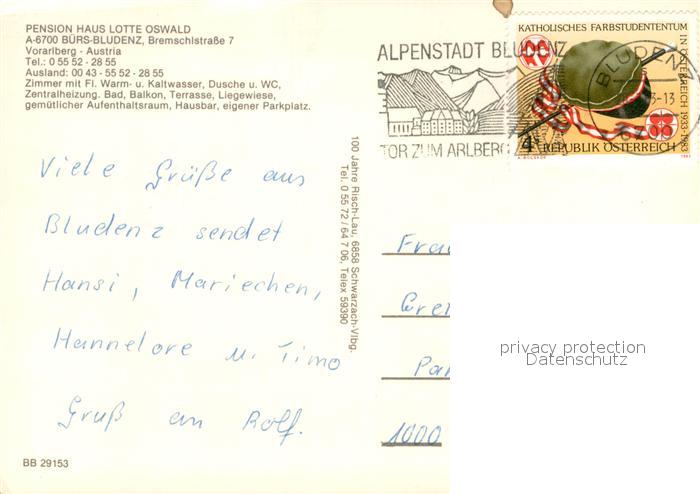 PENSION HAUS LOTTE OSWALD
A-6700 BÜRS-BLUDENZ, Bremschlstraße 7
Vorarlberg - Austria
Tel.: 0 55 52 - 28 55
Ausland: 00 43 - 55 52 - 28 55
Zimmer mit Fl. Warm- u. Kaltwasser, Dusche u. WC,
Zentralheizung. Bad, Balkon, Terrasse, Liegewiese,
gemütlicher Aufenthaltsraum, Hausbar, eigener Parkplatz.
ALPENSTADT BLUDENZ
TOR ZUM ARLBERG
BLUDENZ
6700
KATHOLISCHES FARBSTUDENTENTUM
IN ÖSTERREICH 1933-1983
4S
REPUBLIK ÖSTERREICH
Viele Grüße aus
Bludenz sendet
Hansi, Mariechen,
Hannelore u. Timo
Gruß an Rolf.
100 Jahre Risch-Lau, 6858 Schwarzach-Vlbg.
Tel. 0 55 72 / 64 7 06, Telex 59390
Frau
1000
privacy protection
Datenschutz
BB 29153